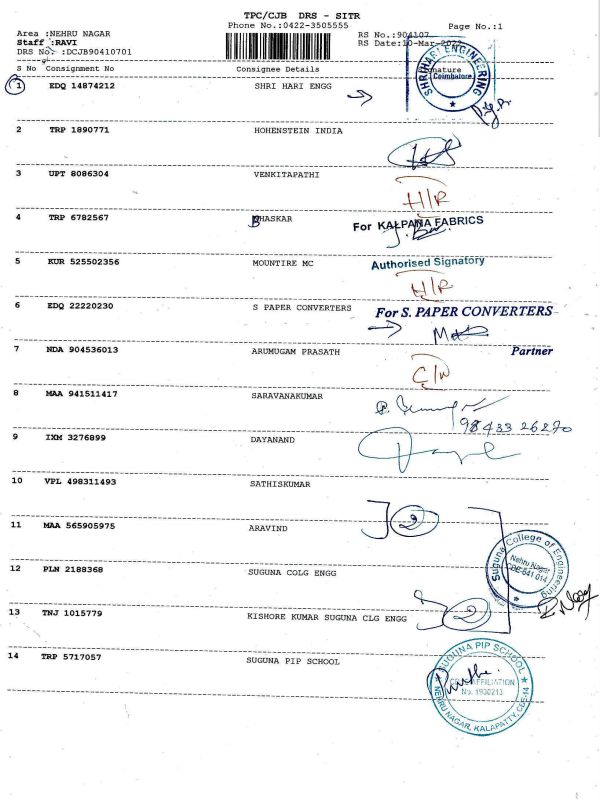 TPC/CJB DRS - SITR
Phone No.:0422-3505555
Page No.:1
Area :NEHRU NAGAR
Staff :RAVI
DRS No. :DCJB90410701
RS No.:904107
RS Date:10-Mar-2022
S No Consignment No Consignee Details Signature
1 EDQ 14874212 SHRI HARI ENGG
SHRI HARI ENGINEERING
Coimbatore
2 TRP 1890771 HOHENSTEIN INDIA
3 UPT 8086304 VENKITAPATHI
H/R
4 TRP 6782567 BHASKAR
For KALPANA FABRICS
5 KUR 525502356 MOUNTIRE MC
Authorised Signatory
H/R
6 EDQ 22220230 S PAPER CONVERTERS
For S. PAPER CONVERTERS
7 NDA 904536013 ARUMUGAM PRASATH
Partner
C/N
8 MAA 941511417 SARAVANAKUMAR
98433 26270
9 IXM 3276899 DAYANAND
10 VPL 498311493 SATHISKUMAR
11 MAA 565905975 ARAVIND
2
12 PLN 2188368 SUGUNA COLG ENGG
Suguna College of Engineering
Nehru Nagar
CBE-641 014
13 TNJ 1015779 KISHORE KUMAR SUGUNA CLG ENGG
2
14 TRP 5717057 SUGUNA PIP SCHOOL
SUGUNA PIP SCHOOL
CBSE AFFILIATION
No. 1930213
NEHRU NAGAR, KALAPATTY, CBE-14